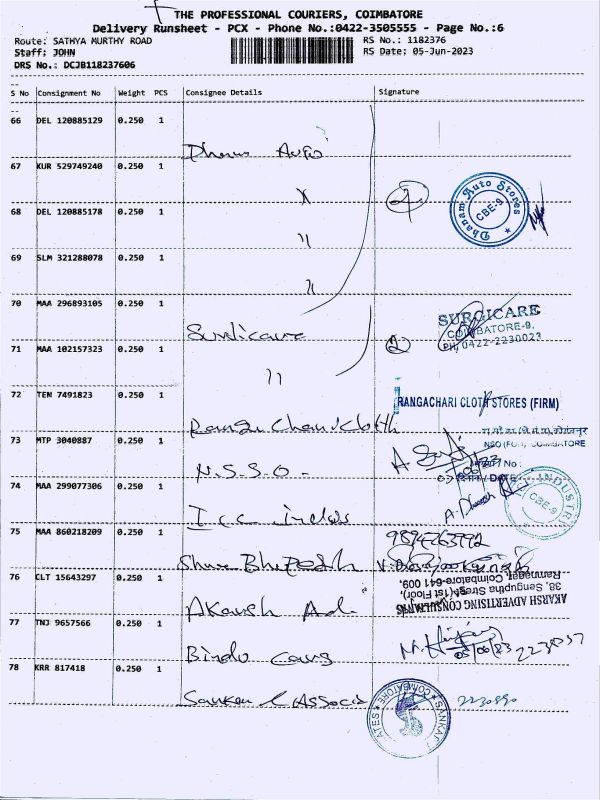 THE PROFESSIONAL COURIERS, COIMBATORE
Delivery Runsheet - PCX - Phone No.:0422-3505555 - Page No.:6
Route: SATHYA MURTHY ROAD
RS No.: 1182376
Staff: JOHN
RS Date: 05-Jun-2023
DRS No.: DCJB118237606
S No Consignment No Weight PCS Consignee Details Signature
66 DEL 120885129 0.250 1
Dhanam Auto
67 KUR 529749240 0.250 1
"
4
Dhanam Auto Stores
CBE-9
68 DEL 120885178 0.250 1
"
69 SLM 321288078 0.250 1
"
70 MAA 296893105 0.250 1
Surgicare
SURGICARE
COIMBATORE-9.
PH, 0422-2230023
71 MAA 102157323 0.250 1
"
2
72 TEN 7491823 0.250 1
Rangachari Cloth
RANGACHARI CLOTH STORES (FIRM)
73 MTP 3040887 0.250 1
N.S.S.O-
COIMBATORE
74 MAA 299077306 0.250 1
Icc indus
INDUSTRI
CBE-9
75 MAA 860218209 0.250 1
Shree
76 CLT 15643297 0.250 1
Akarsh Ad.
AKARSH ADVERTISING CONSULTANTS
38, Senguptha Street (1st Floor),
Ramnagar, Coimbatore-641 009.
77 TNJ 9657566 0.250 1
Bindu
05/06/23
78 KRR 817418 0.250 1
Sankar & Associa
COIMBATORE
2230890